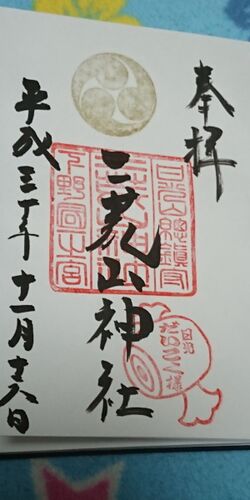 奉拝
日光山總鎮守
二荒山神社
下野國一之宮
日光
だいこく様
平成三十年十一月十六日